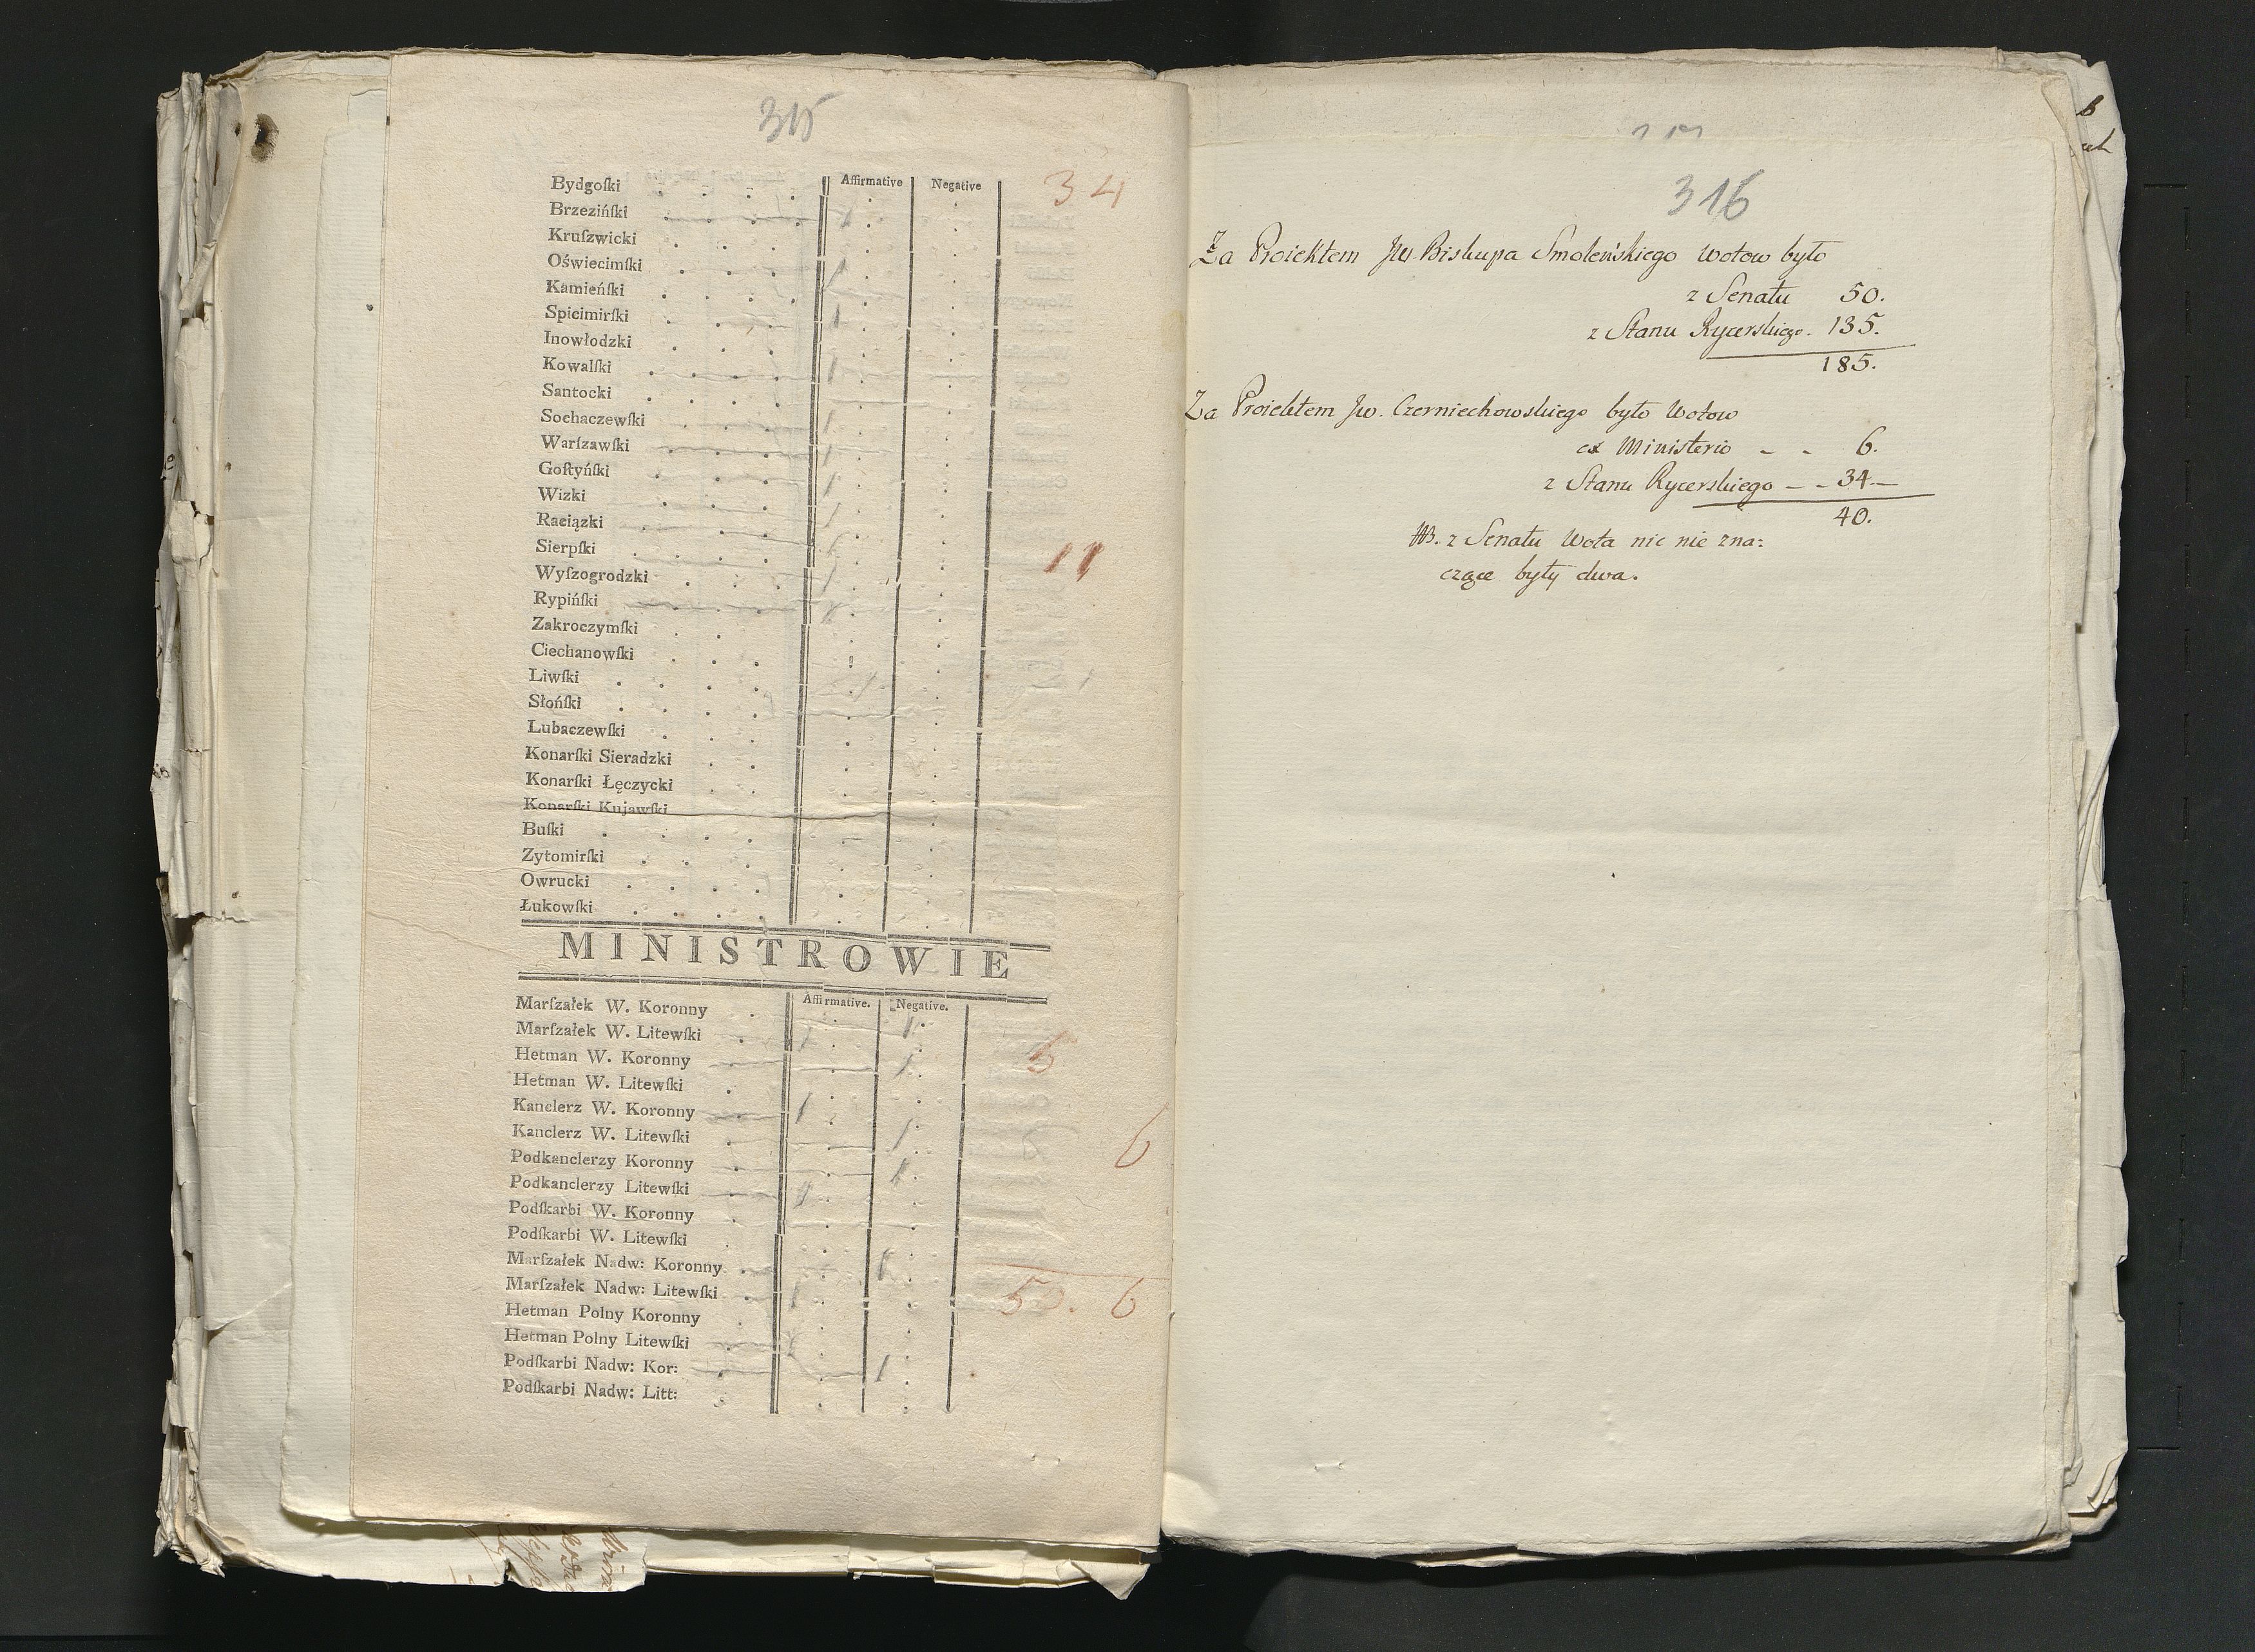 315
Affirmative Negative
Bydgoſki
34
Brzezińſki
Kruſzwicki
Oświecimſki
Kamieńſki
Spicimirſki
Inowłodzki
Kowalſki
Santocki
Sochaczewſki
Warſzawſki
Goſtyńſki
Wizki
Raciązki
Sierpſki
11
Wyſzogrodzki
Rypińſki
Zakroczymſki
Ciechanowſki
Liwſki
Słońſki
Lubaczewſki
Konarſki Sieradzki
Konarſki Łęczycki
Konarſki Kujawſki
Buſki
Zytomirſki
Owrucki
Łukowſki
MINISTROWIE
Affirmative. Negative.
Marſzałek W. Koronny
Marſzałek W. Litewſki
Hetman W. Koronny
5
Hetman W. Litewſki
Kanclerz W. Koronny
Kanclerz W. Litewſki
6
Podkanclerzy Koronny
Podkanclerzy Litewſki
Podſkarbi W. Koronny
Podſkarbi W. Litewſki
Marſzałek Nadw: Koronny
Marſzałek Nadw: Litewſki
50. 6
Hetman Polny Koronny
Hetman Polny Litewſki
Podſkarbi Nadw: Kor:
Podſkarbi Nadw: Litt:
316
Za Proiektem Jw. Biskupa Smoleńskiego wotow było
z Senatu 50.
z Stanu Rycerskiego. 135.
185.
Za Proiektem Jw. Czerniechowskiego było Wotow
ex Ministerio - - 6.
z Stanu Rycerskiego - - 34.-
40.
NB. z Senatu Wota nic nie zna:
czące były dwa.